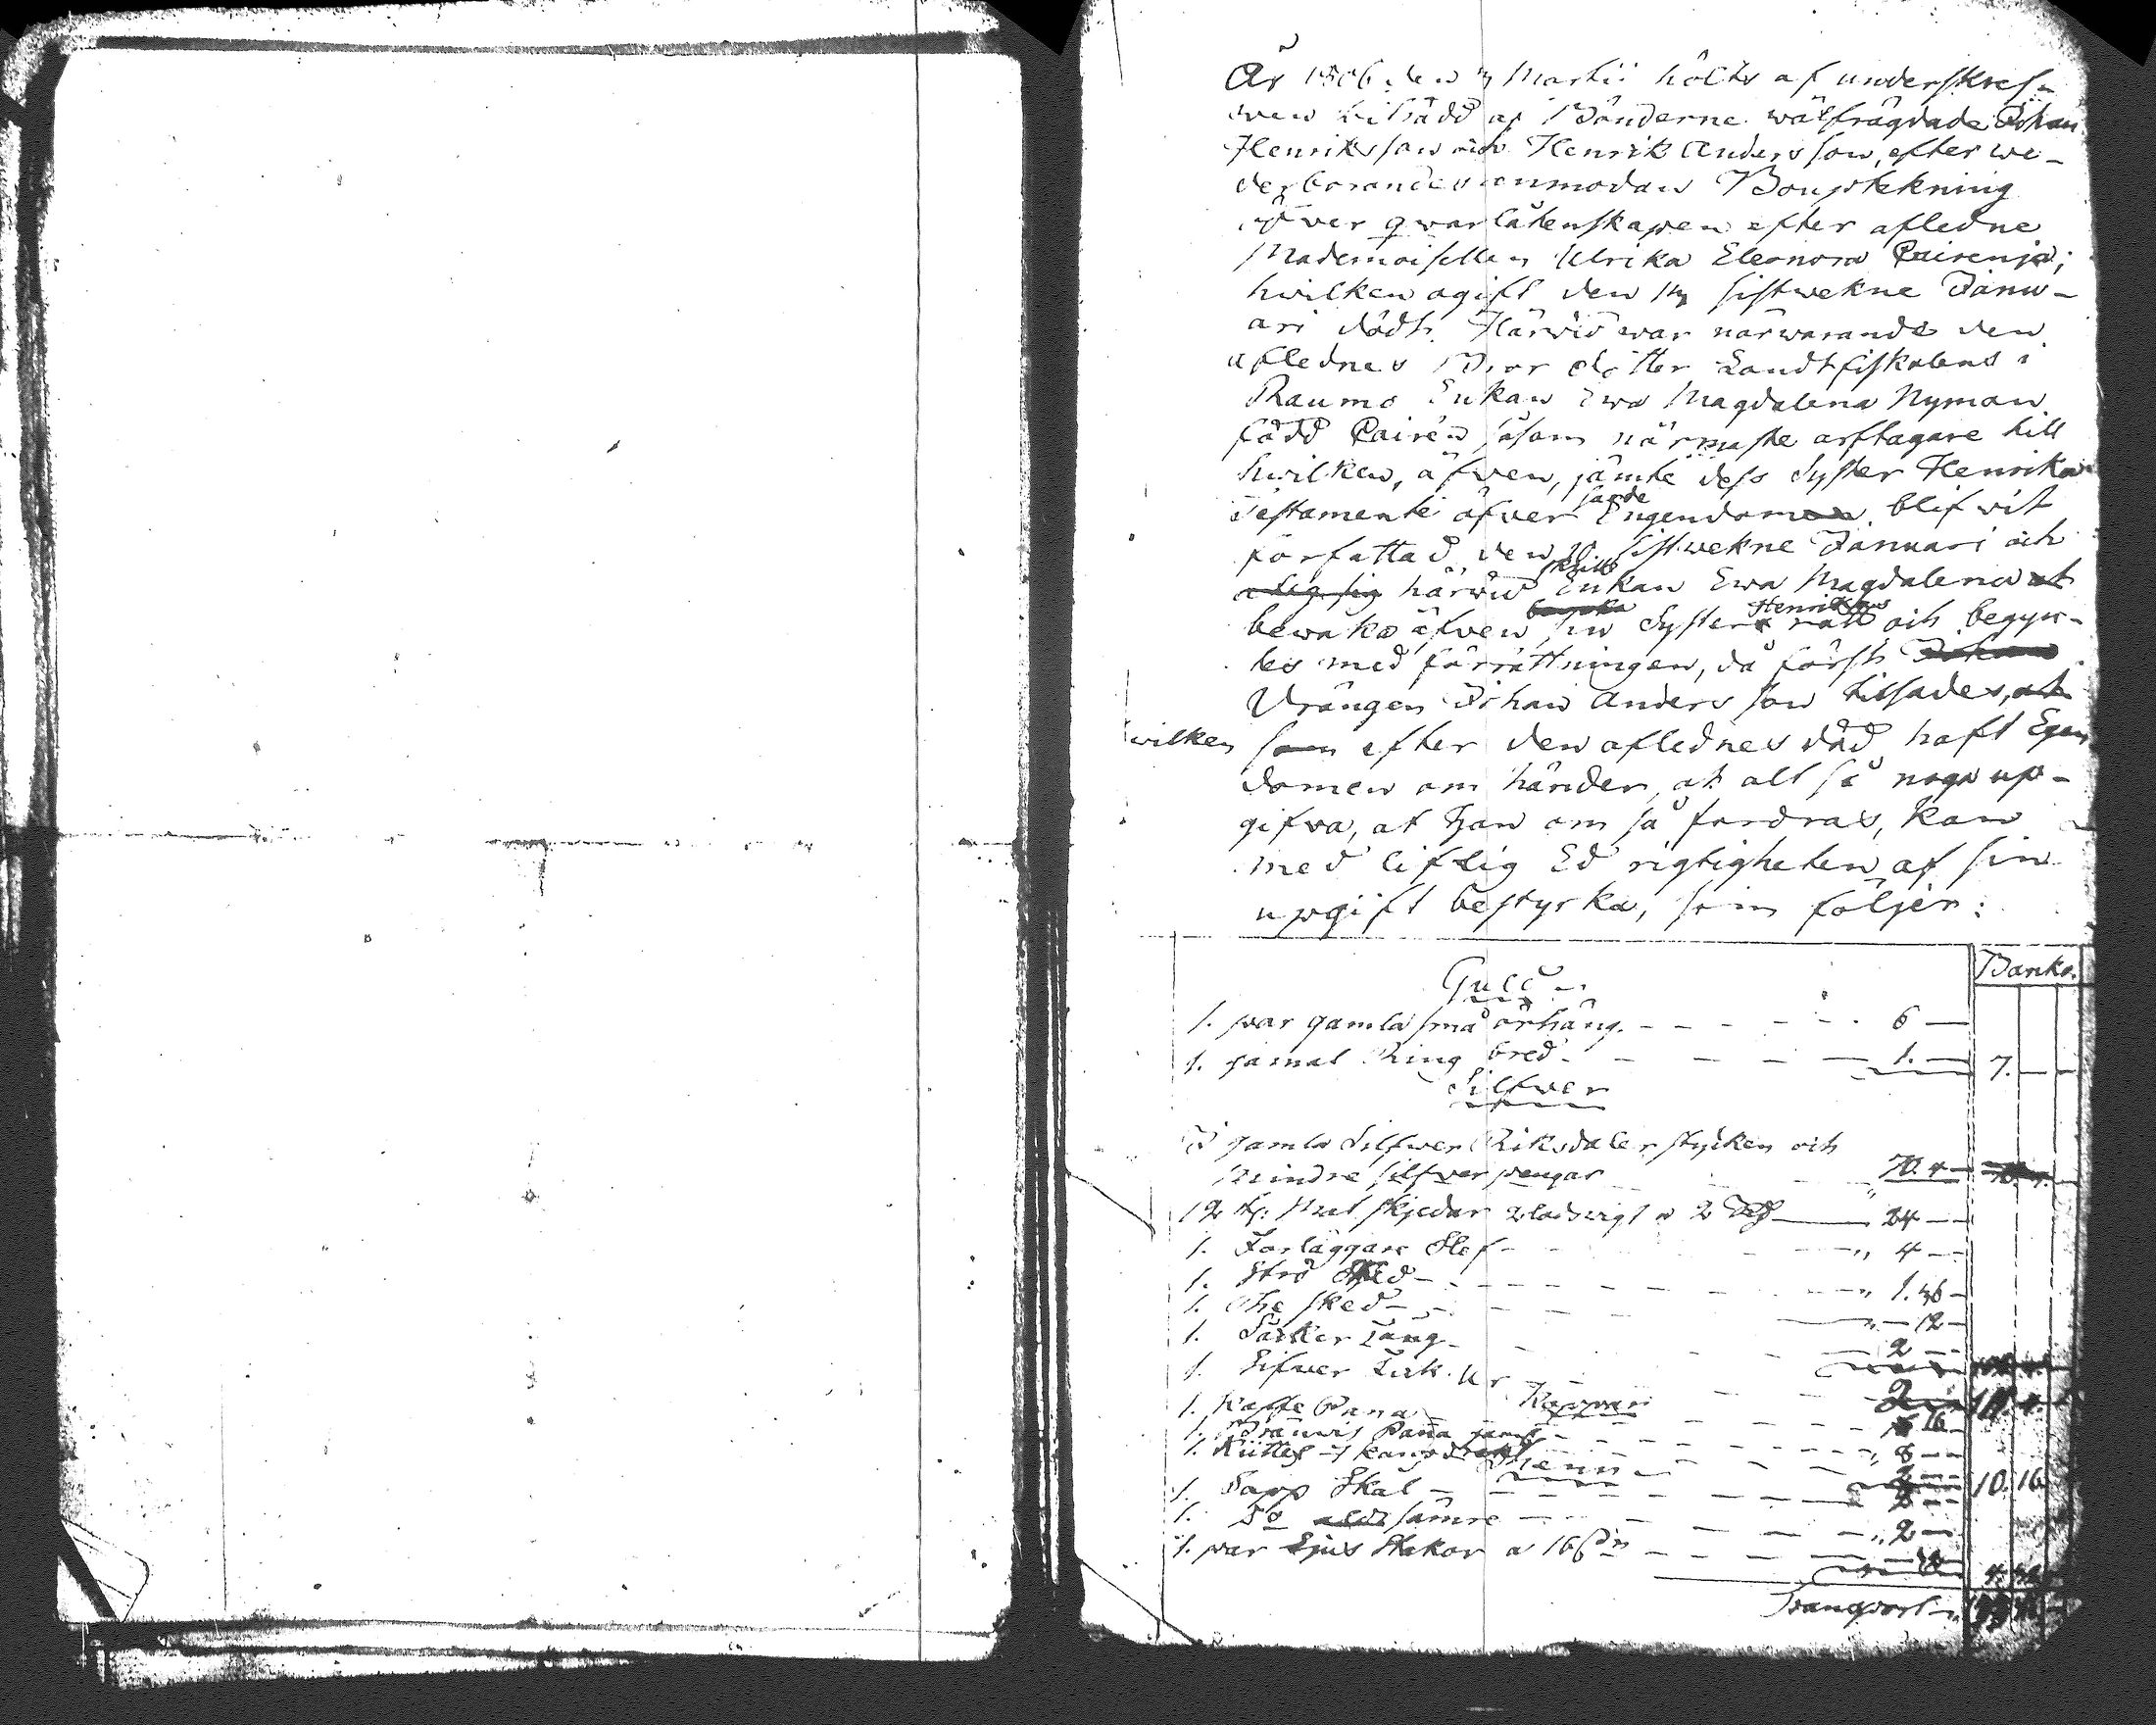 År 1806 den 3 Martii hölts af underskref-
wen biträdd af Bönderne wälfrägdade Johan
Henriksson och Henrik Andersson, efter we-
derbörandes anmodan Bouptekning
öfver qwarlåtenskapen efter afledne
Mademoisellen Ulrika Eleonora Pairenia;
hwilken ogift den 14 sistwekne Janu-
ari dödt. Härwid war närwarande den
aflednes Bror dotter Landtfiskalens i
Raumo Enkan Ewa Magdalena Nyman
född Pairén såsom närmaste arftagare till
hwilken, äfwen, jämte dess Syster Henrika
Testamente öfver sagde Engendomen blifwit
författad den 20 sistwekne Januari och
härwid skulle Enkan Ewa Magdalena at
bewaka äfwen sin Syster Henrikas rätt och begyn-
tes med förrättningen, då först Johan
Drängen Johan Andersson tillsades, at
hwilken som efter den aflednes död haft Egen
domen om händer, at alt så noga up-
gifwa, at Han om så fordras, kan
med liflig Ed rigtigheten af sin
upgift bestyrka, som följer:
Banko.
Guld
1. par gamla små örhäng. 6 —
1. gamal Ring bred 1. — 7. —
Silfwer
I gamla Silfwer Riksdaler stycken och
mindre silfver pengar 70. 4
12 st: Mat skjedar 2 lods wigt a 2 Rd 24 —
1. Förläggare Slef „ 4 —
1. Strö Sked „ 1. 36 —
1. The sked „ — 12 —
1. Såcker Tång 2 —
1. Silfwer Fick Ur
Koppar
1. Kaffe Pana 16
1. Bränwis Pana gaml 8 —
1. Kittel 2 — 10. 16
Tenn
1. Sapp Skål 2 —
1. Do sämre „ 2 —
1. par Ljus Stakar a 16 s
Transport